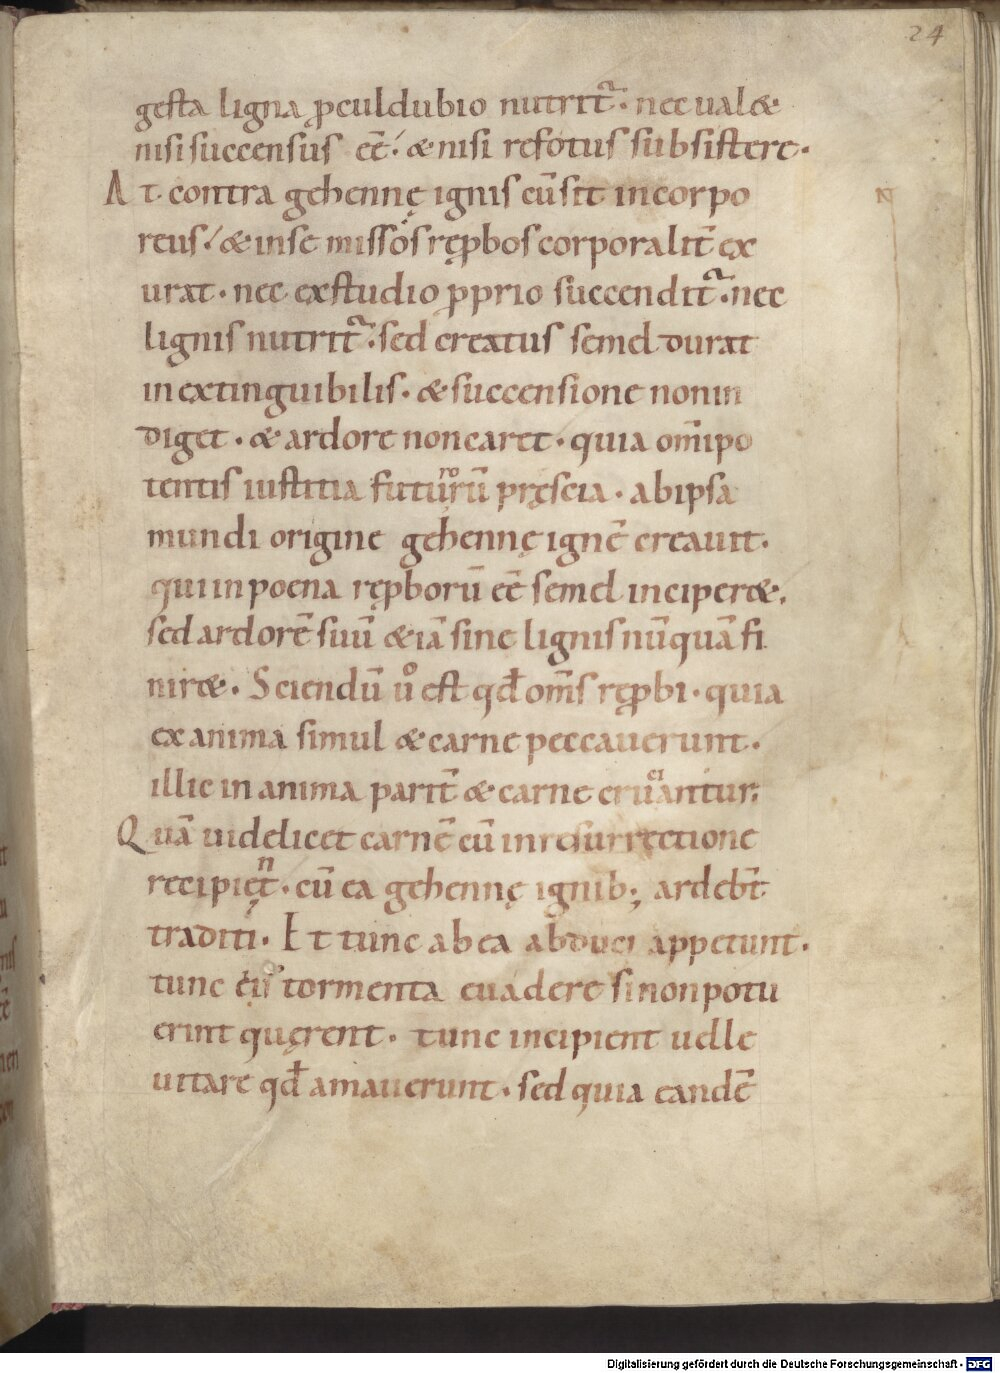 24
gesta ligna ꝓculdubio nutrit᷑· nec ual⁊
nisi succensus eē·́ & nisi refotus subsistere·
At contra gehennę ignis cū sit incorpo
reus·́ & in se missos ręꝓbos corporalit̄ ex
urat· nec ex studio ꝓprio succendit᷑· nec
lignis nutrit᷑· sed creatus semel durat
inextinguibilis· & succensione non in
diget· & ardore non caret· quia om̄ipo
tentis iustitia futuroꝝū pręscia· ab ipsa
mundi origine gehennę ignē creauit·
qui in poena ręꝓborū eē semel inciper&·
sed ardorē suū & iā sine lignis nūquā fi
nir&· Sciendū uͦ est qđ om̄s ręꝓbi· quia
ex anima simul & carne peccauerunt·
illic in anima parit̄ & carne cruciantur;
Quā uidelicet carnē cū in resurrectione
recipient· cū ea gehennę ignib; ardeb̄t
traditi· Et tunc ab ea abduci appetunt·
tunc eiꝰ tormenta euadere si non potu
erint quęrent· tunc incipient uelle
uitare qđ amauerunt· sed quia eandē
N
Digitalisierung gefördert durch die Deutsche Forschungsgemeinschaft - DFG